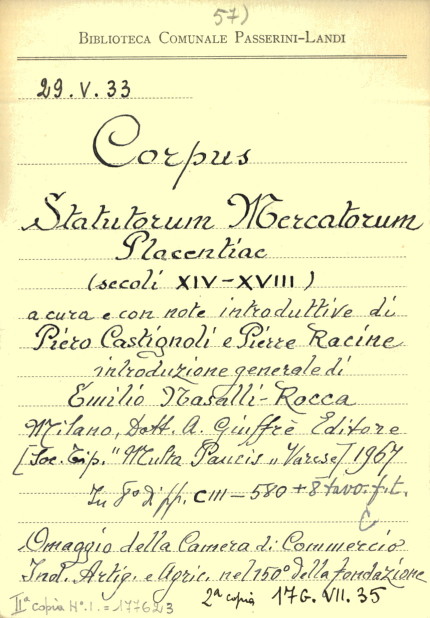 57)
BIBLIOTECA COMUNALE PASSERINI-LANDI
29. V. 33
Corpus
Statutorum Mercatorum
Placentiae
(secoli XIV-XVIII)
a cura e con note introduttive di
Piero Castignoli e Pierre Racine
introduzione generale di
Emilio Nasalli-Rocca
Milano, Dott. A. Giuffrè Editore
[Soc. Tip. "Multa Paucis" Varese] 1967
In 8° di pp. CIII-580 + 8 tavo. f. t.
C
Omaggio della Camera di Commercio
Ind. Artig. e Agric. nel 150° della fondazione
IIª copia N°. I. = 177623
2ª copia 17G. VII. 35